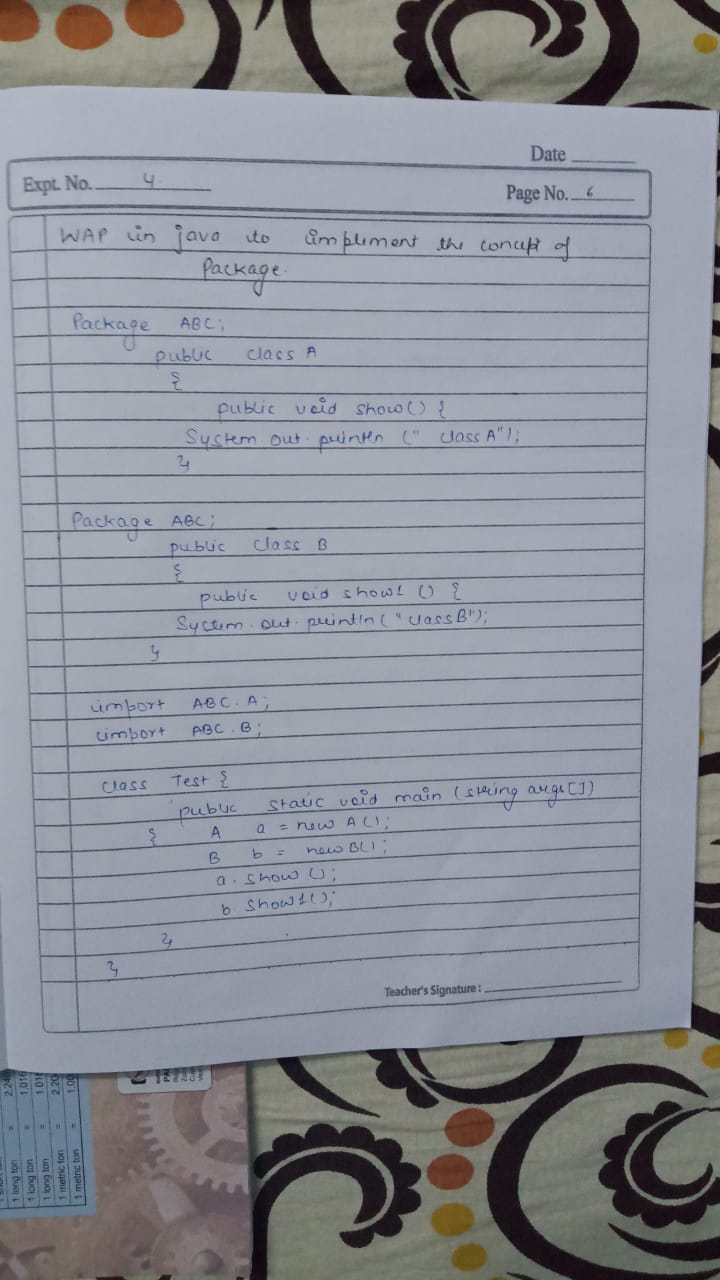 Date
Expt. No. 4.
Page No. 6
WAP in java to impliment the concept of
Package.
Package ABC;
public class A
{
public void show() {
System.out.println (" class A");
}
Package ABC;
public class B
{
public void show1 () {
System.out.println ("class B");
}
import ABC.A;
import ABC.B;
class Test {
public static void main (string args[])
{ A a = new A();
B b = new B();
a. show ();
b. show1();
}
}
Teacher's Signature :
1 long ton =
1 long ton = 1.016
1 long ton =
1 metric ton =
1 metric ton =